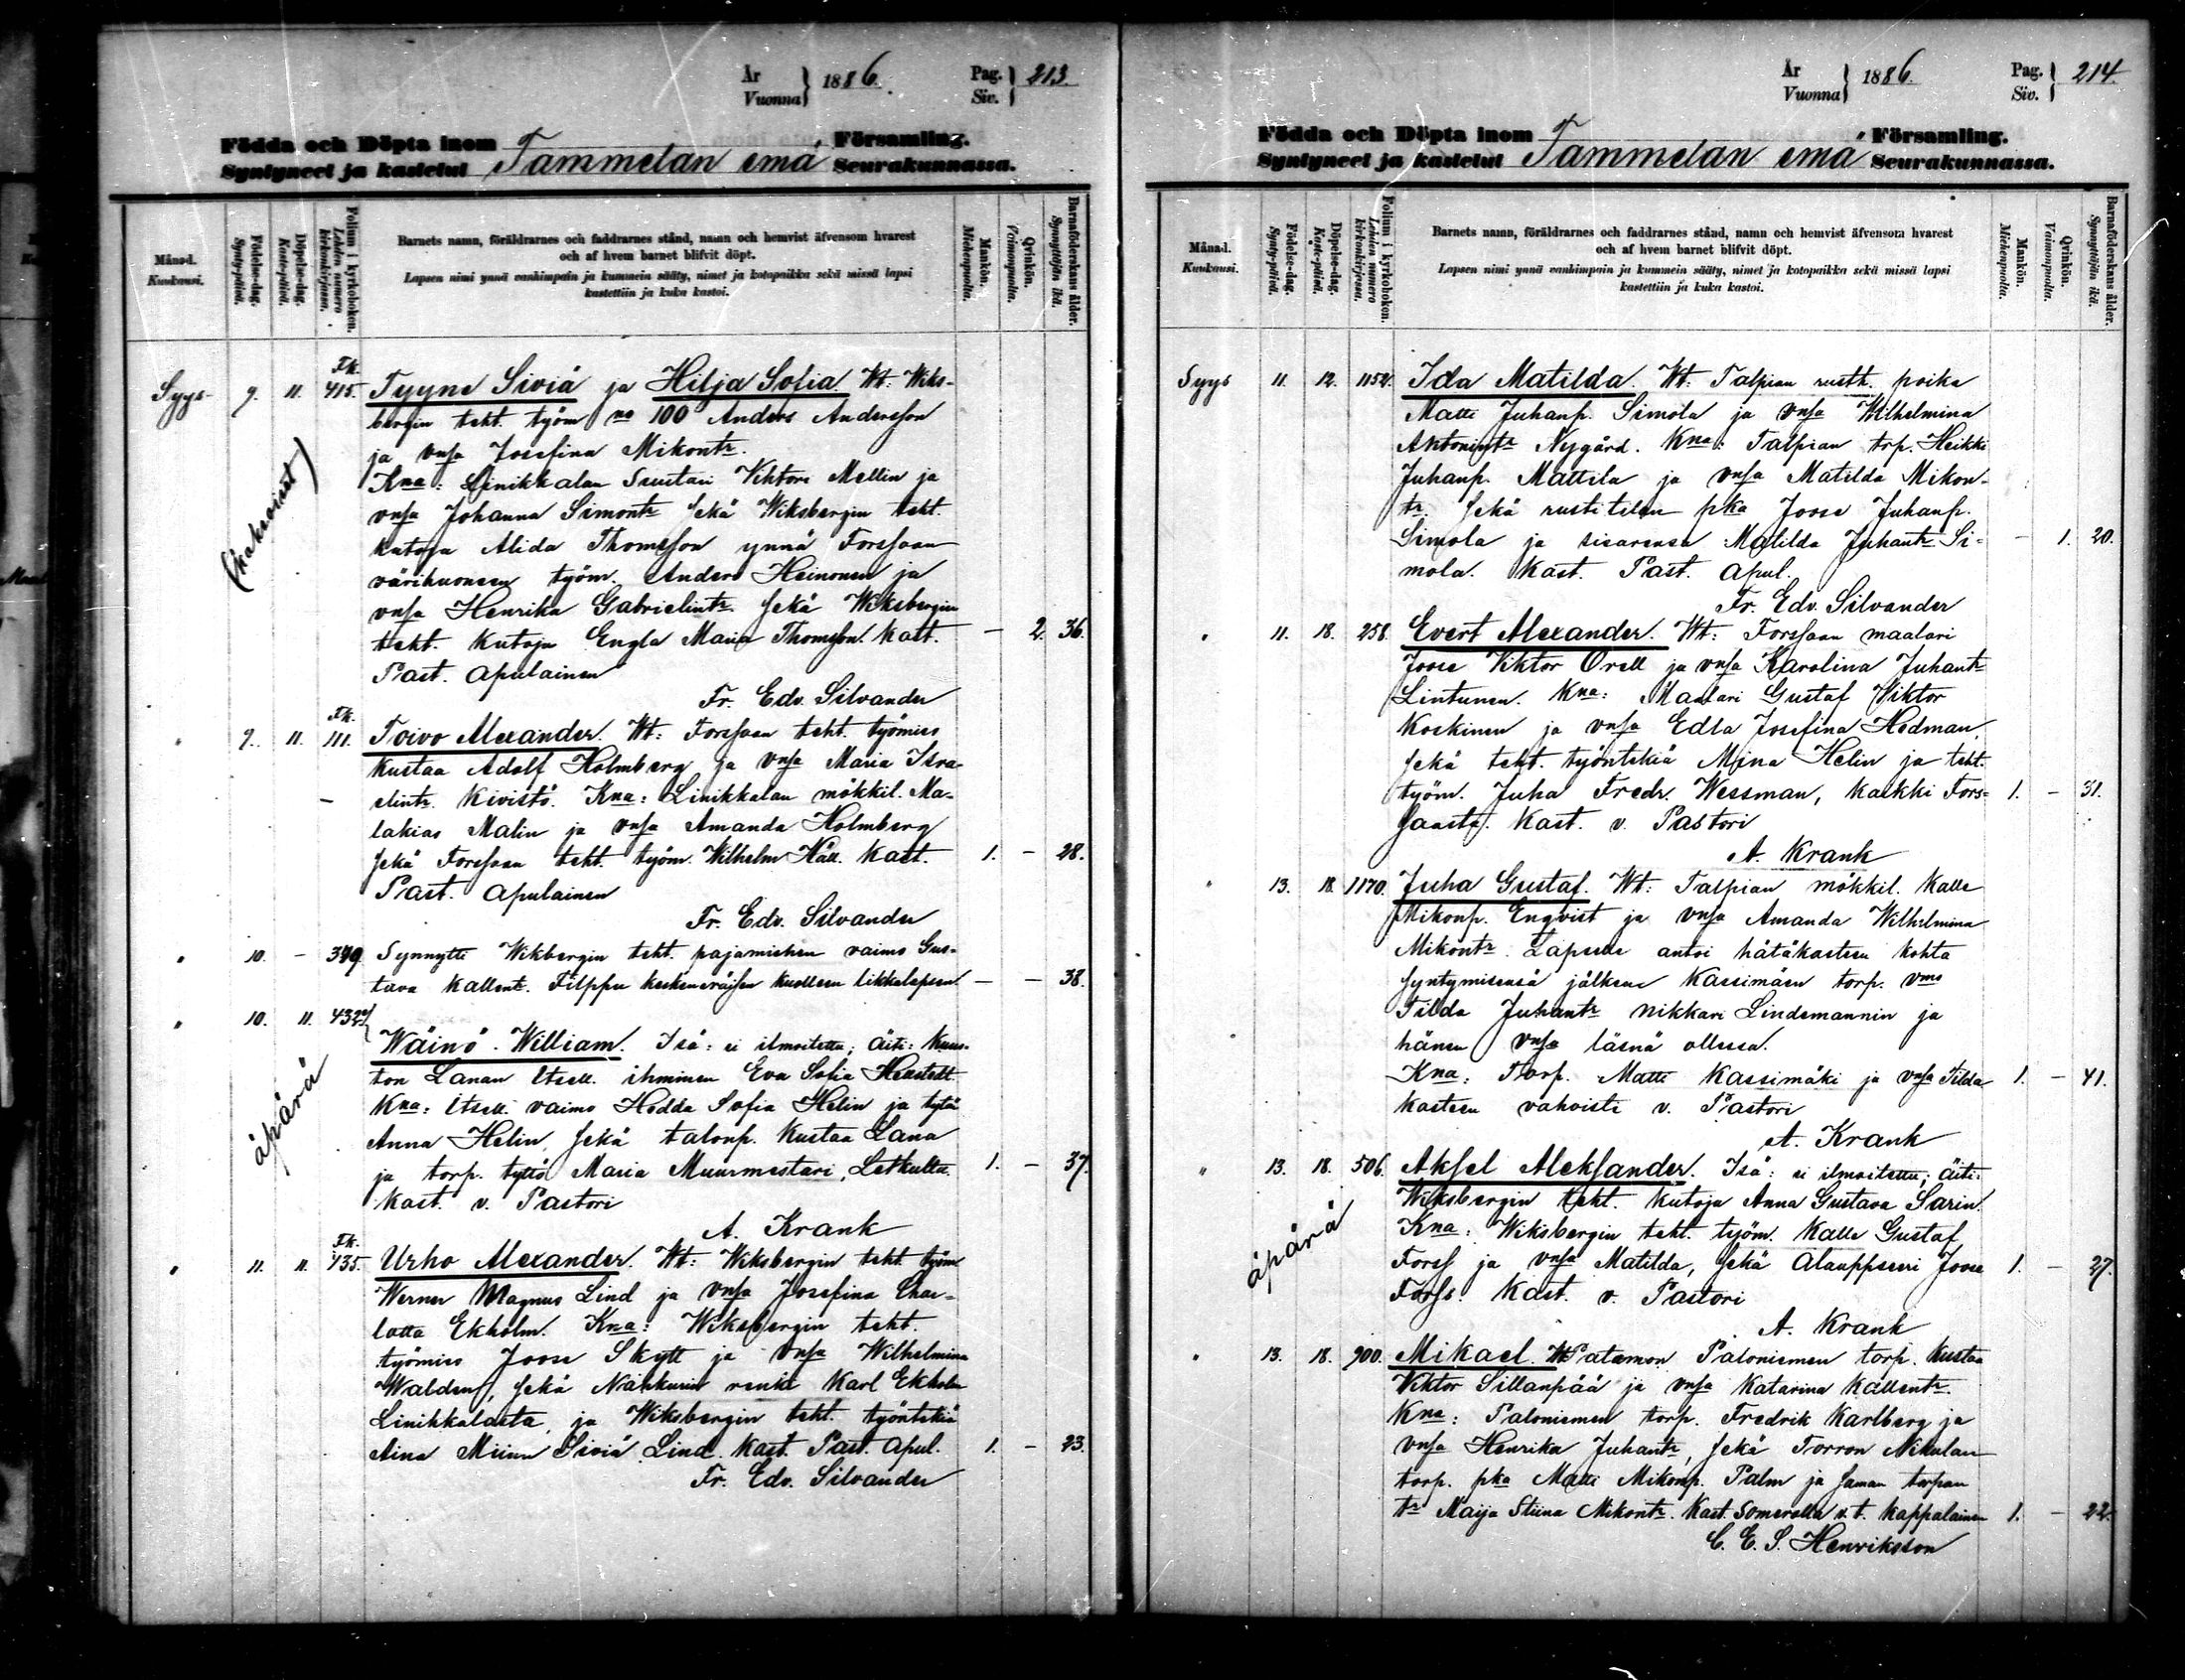 År
Vuonna } 1886.
Pag.
Siv. } 213
Födda och Döpta inom Församling.
Syntyneet ja kastetut Tammelan emä Seurakunnassa.
Månad.
Kuukausi.
Födelse-dag.
Synty-päivä.
Döpelse-dag.
Kaste-päivä.
Folium i kyrkoboken.
Lehden numero kirkonkirjassa.
Barnets namn, föräldrarnes och faddrarnes stånd, namn och hemvist äfvensom hvarest
och af hvem barnet blifvit döpt.
Lapsen nimi ynnä vanhimpain ja kummein sääty, nimet ja kotopaikka sekä missä lapsi
kastettiin ja kuka kastoi.
Mankön.
Miehenpuolta.
Qvinkön.
Vaimonpuolta.
Barnaföderskans ålder.
Synnyttäjän ikä.
Syys- 9. 11. Tk. 415. Tyyne Siviä ja Hilja Sofia Wt: Wiks-
bergin teht. työm no 100 Anders Andersson
ja vnsa Josefina Mikontr.
(kaksoiset)
Kna: Linikkalan Suutari Viktor Mellin ja
vnsa Johanna Simontr sekä Wiksbergin teht.
kutoja Alida Thomsson ynnä Forssaan
värihuoneen työm. Anders Heinonen ja
vnsa Henrika Gabrielintr. sekä Wiksbergin
teht. kutoja Engla Maria Thomsson. Kast. — 2. 36.
Past. apulainen
Fr. Edv. Silvander
" 9. 11. Tk. 111. Toivo Alexander. Wt: Forssaan teht. työmies
Kustaa Adolf Holmberg ja vnsa Maria Isra-
elintr. Kivistö. Kna: Linikkalan mökkil. Ma-
lakias Malin ja vnsa Amanda Holmberg
sekä Forssaan teht. työm. Wilhelm Häll. Kast. 1. — 28.
Past. apulainen
Fr. Edv. Silvander
" 10. — 349. Synnytti Wikbergin teht. pajamiehen vaimo Gus-
tava Kallentr. Filppu keskeneräisen kuolleen likkalapsen. — — 38.
" 10. 11. 432
Wäinö William. Isä: ei ilmoitettu; Äiti: Kuus-
ton Lanan Itsell. ihminen Eva Sofia Henstedt.
äpärä
Kna: Itsell. vaimo Hedda Sofia Helin ja tytä
Anna Helin, sekä talonp. Kustaa Lana
ja torp. tyttö Maria Muurmestari, Letkulta. 1. — 37.
Kast. v. Pastori
A. Krank
" 11. 11. Tk. 435. Urho Alexander. Wt: Wiksbergin teht. työm
Werner Magnus Lind ja vnsa Josefina Char-
lotta Ekholm. Kna: Wiksbergin teht.
työmies Joose Skytt ja vnsa Wilhelmina
Walden, sekä Nahkurin renki Karl Ekholm
Linikkalasta, ja Wiksbergin teht. työntekiä
Aina Miina Siviä Lind. Kast. Past. apul. 1. — 23.
Fr. Edv. Silvander
År
Vuonna } 1886.
Pag.
Siv. } 214.
Födda och Döpta inom Församling.
Syntyneet ja kastetut Tammelan emä Seurakunnassa.
Månad.
Kuukausi.
Födelse-dag.
Synty-päivä.
Döpelse-dag.
Kaste-päivä.
Folium i kyrkoboken.
Lehden numero kirkonkirjassa.
Barnets namn, föräldrarnes och faddrarnes stånd, namn och hemvist äfvensom hvarest
och af hvem barnet blifvit döpt.
Lapsen nimi ynnä vanhimpain ja kummein sääty, nimet ja kotopaikka sekä missä lapsi
kastettiin ja kuka kastoi.
Mankön.
Miehenpuolta.
Qvinkön.
Vaimonpuolta.
Barnaföderskans ålder.
Synnyttäjän ikä.
Syys 11. 12. 1152. Ida Matilda. Wt: Talpian rustt. poika
Matti Juhanp. Simola ja vnsa Wilhelmina
Antonintr Nygård. Kna: Talpian trp. Heikki
Juhanp. Mattila ja vnsa Matilda Mikon-
tr. sekä rustitilan pka Joose Juhanp.
Simola ja sisarensa Matilda Juhantr Si- — 1. 20.
mola. Kast. Past. apul.
Fr. Edv. Silvander
" 11. 18. 258. Evert Alexander. Wt: Forssaan maalari
Joose Viktor Orell ja vnsa Karolina Juhantr
Lintunen. Kna: Maalari Gustaf Viktor
Koskinen ja vnsa Edla Josefina Hedman,
sekä teht. työntekiä Mina Helin ja teht.
työm. Juha Fredr. Wessman, kaikki Fors- 1. — 31.
saasta. Kast. v. Pastori
A. Krank
" 13. 18. 1170. Juha Gustaf. Wt: Talpian mökkil. Kalle
Mikonp. Enqvist ja vnsa Amanda Wilhelmina
Mikontr. Lapselle antoi hätäkasteen kohta
syntymisensä jälkeen Kassimäen torp. vmo
Tilda Juhantr nikkari Lindemannin ja
hänen vnsa läsnä ollessa.
Kna: Torp. Matti Kassimäki ja vnsa Tilda 1. — 41.
Kasteen vahvisti v. Pastori
A. Krank
" 13. 18. 506. Aksel Aleksander. Isä: ei ilmoitettu; Äiti:
Wiksbergin teht. kutoja Anna Gustava Sarin.
äpärä
Kna: Wiksbergin teht. työm. Kalle Gustaf
Forss ja vnsa Matilda, sekä alauppseeri Joose 1. — 27.
Forss. Kast. v. Pastori
A. Krank
" 13. 18. 900. Mikael. Wt Patamon Paloniemen torp. Kustaa
Viktor Sillanpää ja vnsa Katarina Kallentr.
Kna: Paloniemen torp. Fredrik Karlberg ja
vnsa Henrika Juhantr, sekä Torron Nikulan
torp. pka Matti Mikonp. Palm ja saman torpan
tr Maija Stiina Mikontr. Kast. Somerolla v. t. Kappalainen 1. — 22.
C. E. S. Henriksson